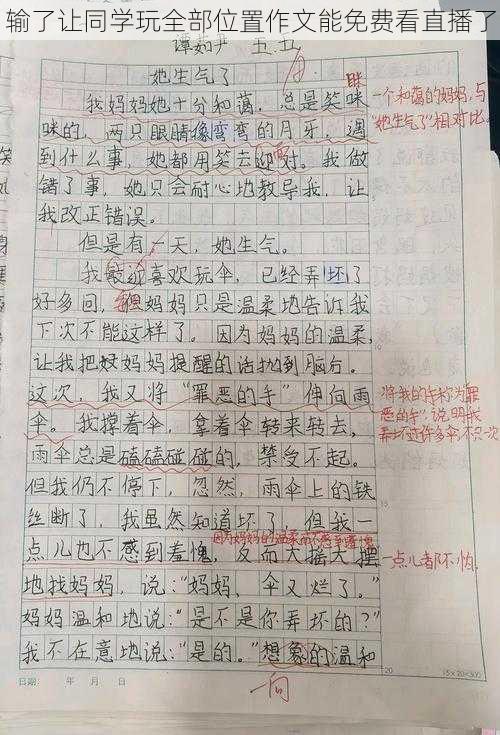 输了让同学玩全部位置作文能免费看直播了
谭茹尹 五.五
她生气了
我妈妈她十分和蔼，总是笑咪
咪的，两只眼睛像弯弯的月牙，遇
到什么事，她都用笑去迎对。我做
错了事，她只会耐心地教导我，让
我改正错误。
但是有一天，她生气。
我最近喜欢玩伞，已经弄坏了
好多间，但妈妈只是温柔地告诉我
下次不能这样了。因为妈妈的温柔，
让我把妈妈提醒的话抛到脑后。
这次，我又将“罪恶的手”伸向雨
伞。我撑着伞，拿着伞转来转去，
雨伞总是磕磕碰碰的，禁受不起。
但我仍不停下，忽然，雨伞上的铁
丝断了，我虽然知道坏了，但我一
因为妈妈的温柔而不感到羞愧
点儿也不感到羞愧，反而大摇大摆
地找妈妈，说：“妈妈，伞又烂了。”
妈妈温和地说：“是不是你弄坏的？”
我不在意地说：“是的。”想象的温和
眯
一个和蔼的妈妈，与
“她生气了”相对比。
“将我的手称为罪
恶的手”，说明我
弄坏过许多伞，不只一次
一点儿都不怕。
一向
日期： 年 月 日
20
15×20=300